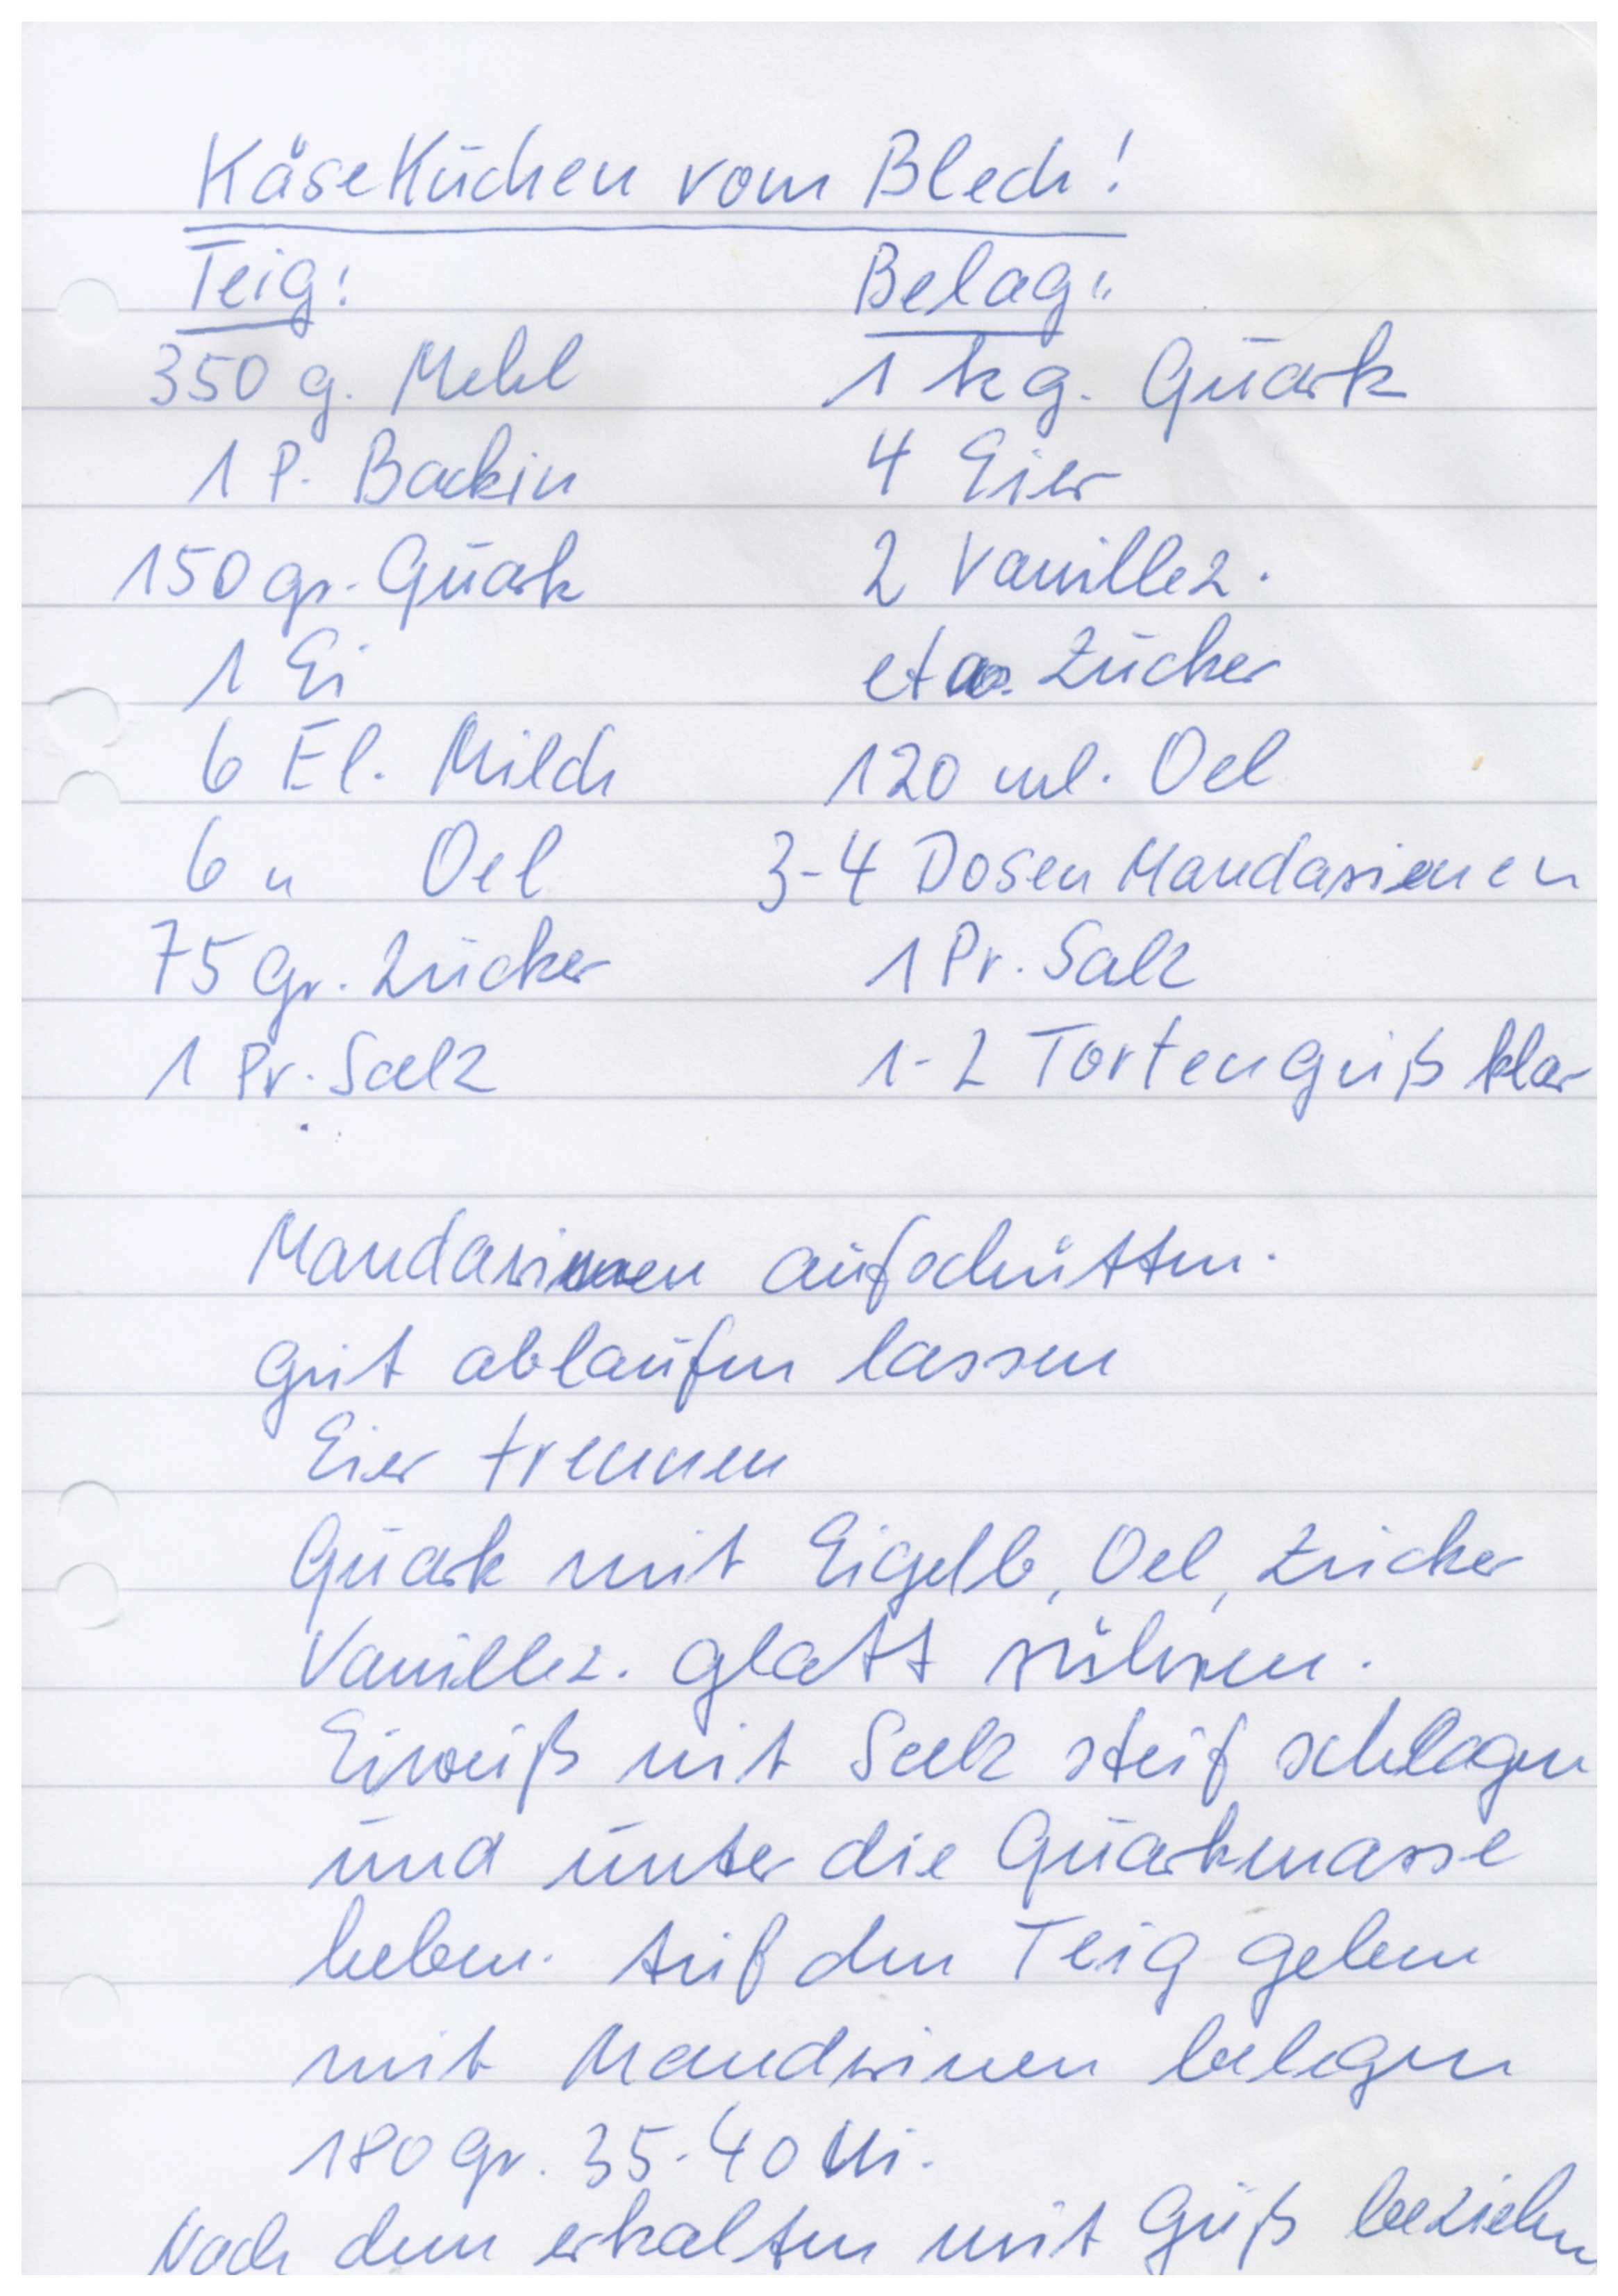 Käsekuchen vom Blech!
Teig:
350 g. Mehl
1 P. Backin
150 gr. Quark
1 Ei
6 El. Milch
6 " Oel
75 gr. Zucker
1 Pr. Salz
Belag:
1 kg. Quark
4 Eier
2 Vanillez.
Zucker
120 ml. Oel
3-4 Dosen Mandarinen
1 Pr. Salz
1-2 Tortenguß klar
Mandarinen aufschütten.
gut ablaufen lassen
Eier trennen
Quark mit Eigelb, Oel, Zucker
Vanillez. glatt rühren.
Eiweiß mit Salz steif schlagen
und unter die Quarkmasse
heben. Auf den Teig geben
mit Mandrinen belegen
180 gr. 35-40 Mi.
Nach dem erkalten mit Guß beziehen